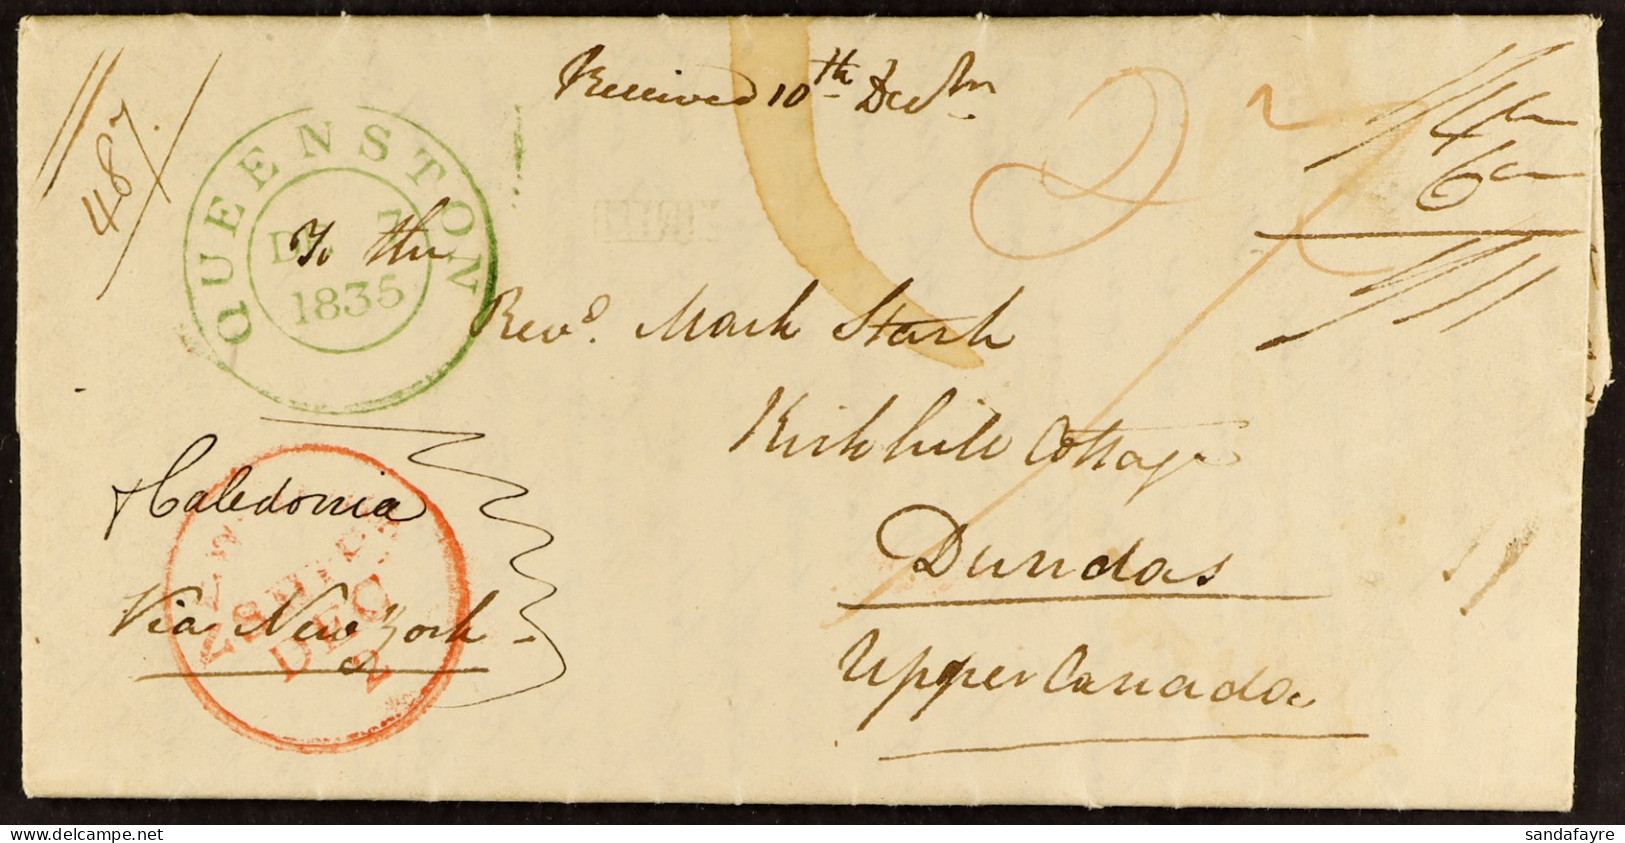 Received 10th Decbr
487.
QUEENSTON
DE 7
1835
27
4
6
To the
Revd. Mark Stark
Kirkhill Cottage
Caledonia
NEW YORK SHIP
DEC
2
Dundas
Via New York
Upper Canada
sandafayre